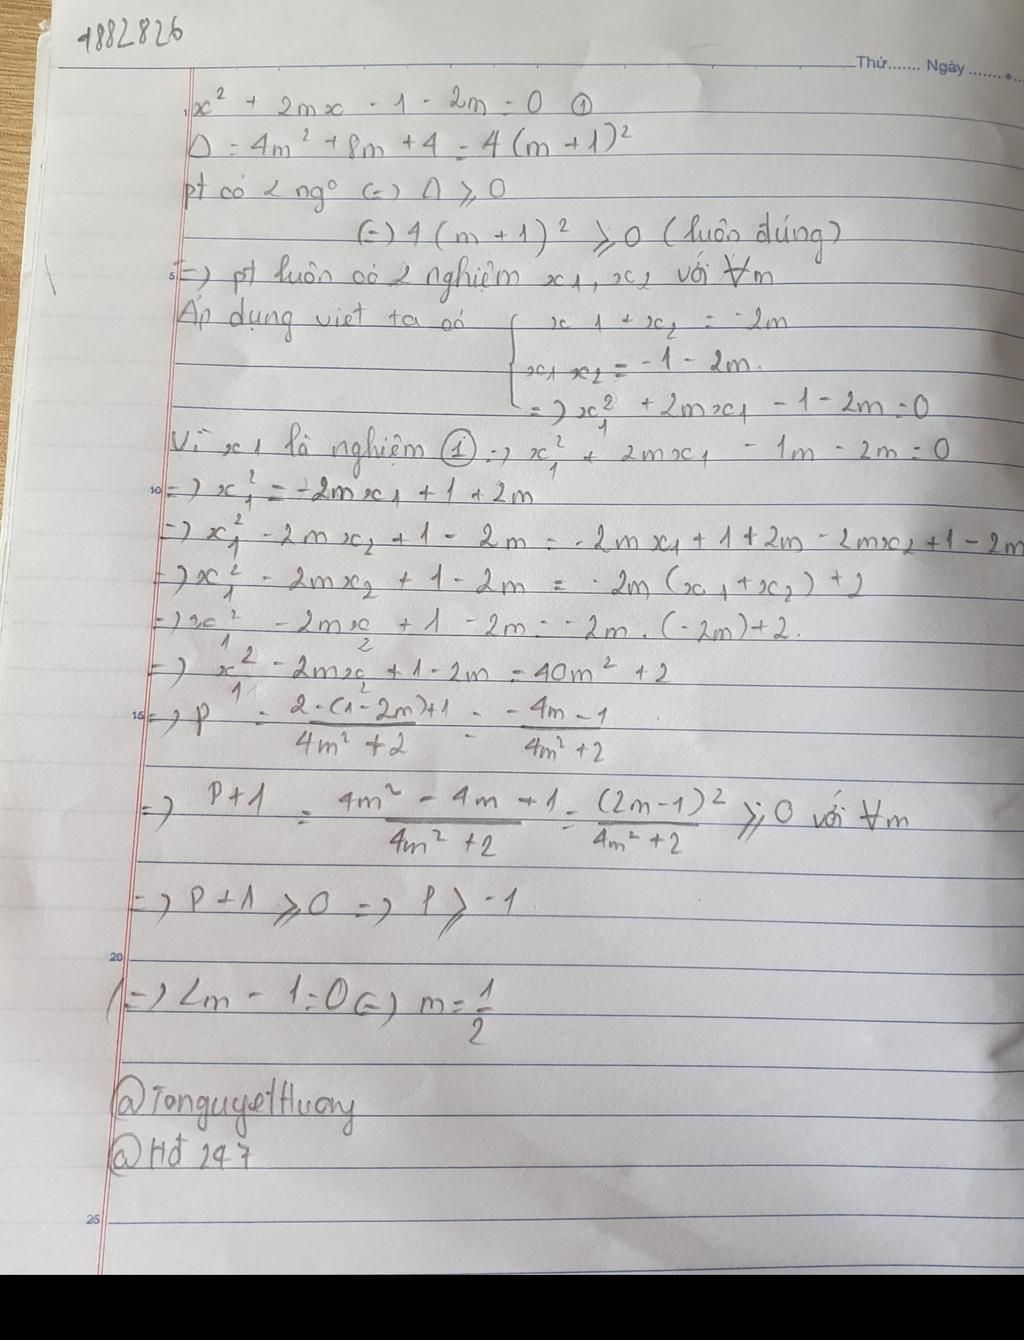 1882826
Thứ....... Ngày.........
x² + 2mx - 1 - 2m = 0 ①
Δ = 4m² + 8m + 4 = 4(m+1)²
pt có 2 ngº (=) Δ ⩾ 0
(=) 4(m+1)² ⩾ 0 (luôn đúng)
5 =) pt luôn có 2 nghiệm x1, x2 với ∀m
Áp dụng viet ta có { x1 + x2 = -2m
x1 x2 = -1 - 2m.
=) x1² + 2mx1 - 1 - 2m = 0
Vì x1 là nghiệm ① =) x1² + 2mx1 - 1m - 2m = 0
10 =) x1² = -2mx1 + 1 + 2m
=) x1² - 2mx2 + 1 - 2m = -2mx1 + 1 + 2m - 2mx2 + 1 - 2m
=) x1² - 2mx2 + 1 - 2m = -2m(x1 + x2) + 2
=) x1² - 2mx2 + 1 - 2m = -2m.(-2m) + 2.
=) x1² - 2mx2 + 1 - 2m = 40m² + 2
15 =) P = 2-(1-2m)+1 / 4m² + 2 = -4m - 1 / 4m² + 2
=) P+1 = 4m² - 4m + 1 / 4m² + 2 = (2m-1)² / 4m² + 2 ⩾ 0 với ∀m
=) P+1 ⩾ 0 =) P ⩾ -1
20
(=) 2m - 1 = 0 (=) m = 1/2
@TonguyetHuong
@Hđ 247
25